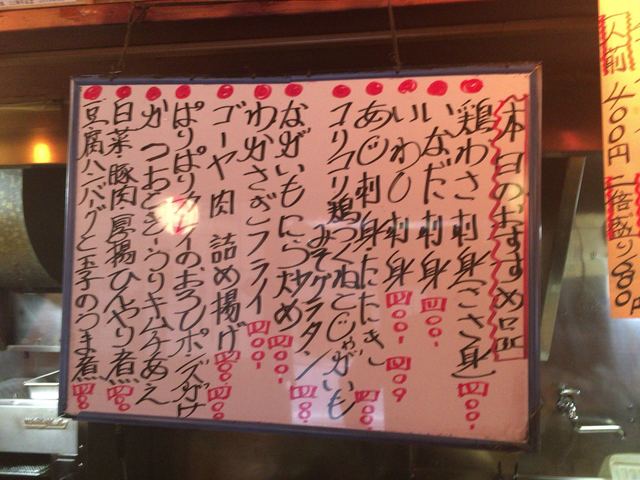 本日のおすすめ品
鶏わさ刺身(ささ身) 四〇〇.
いなだ刺身 四〇〇.
いわし刺身 四〇〇.
あじ刺身たたき 四〇〇
コリコリ鶏つくねとじゃがいも
みそグラタン 四〇〇.
ながいもにら炒め 四〇〇.
わかさぎフライ 四〇〇.
ゴーヤ肉詰め揚げ 四〇〇
ぱりぱり
のおろしポン酢がけ 四〇〇
かつおときゅうりキムチあえ
白菜豚肉厚揚ひんやり煮 四〇〇
豆腐ハンバーグと玉子のうま煮 四〇〇
一人前 400円 一倍盛り 600円